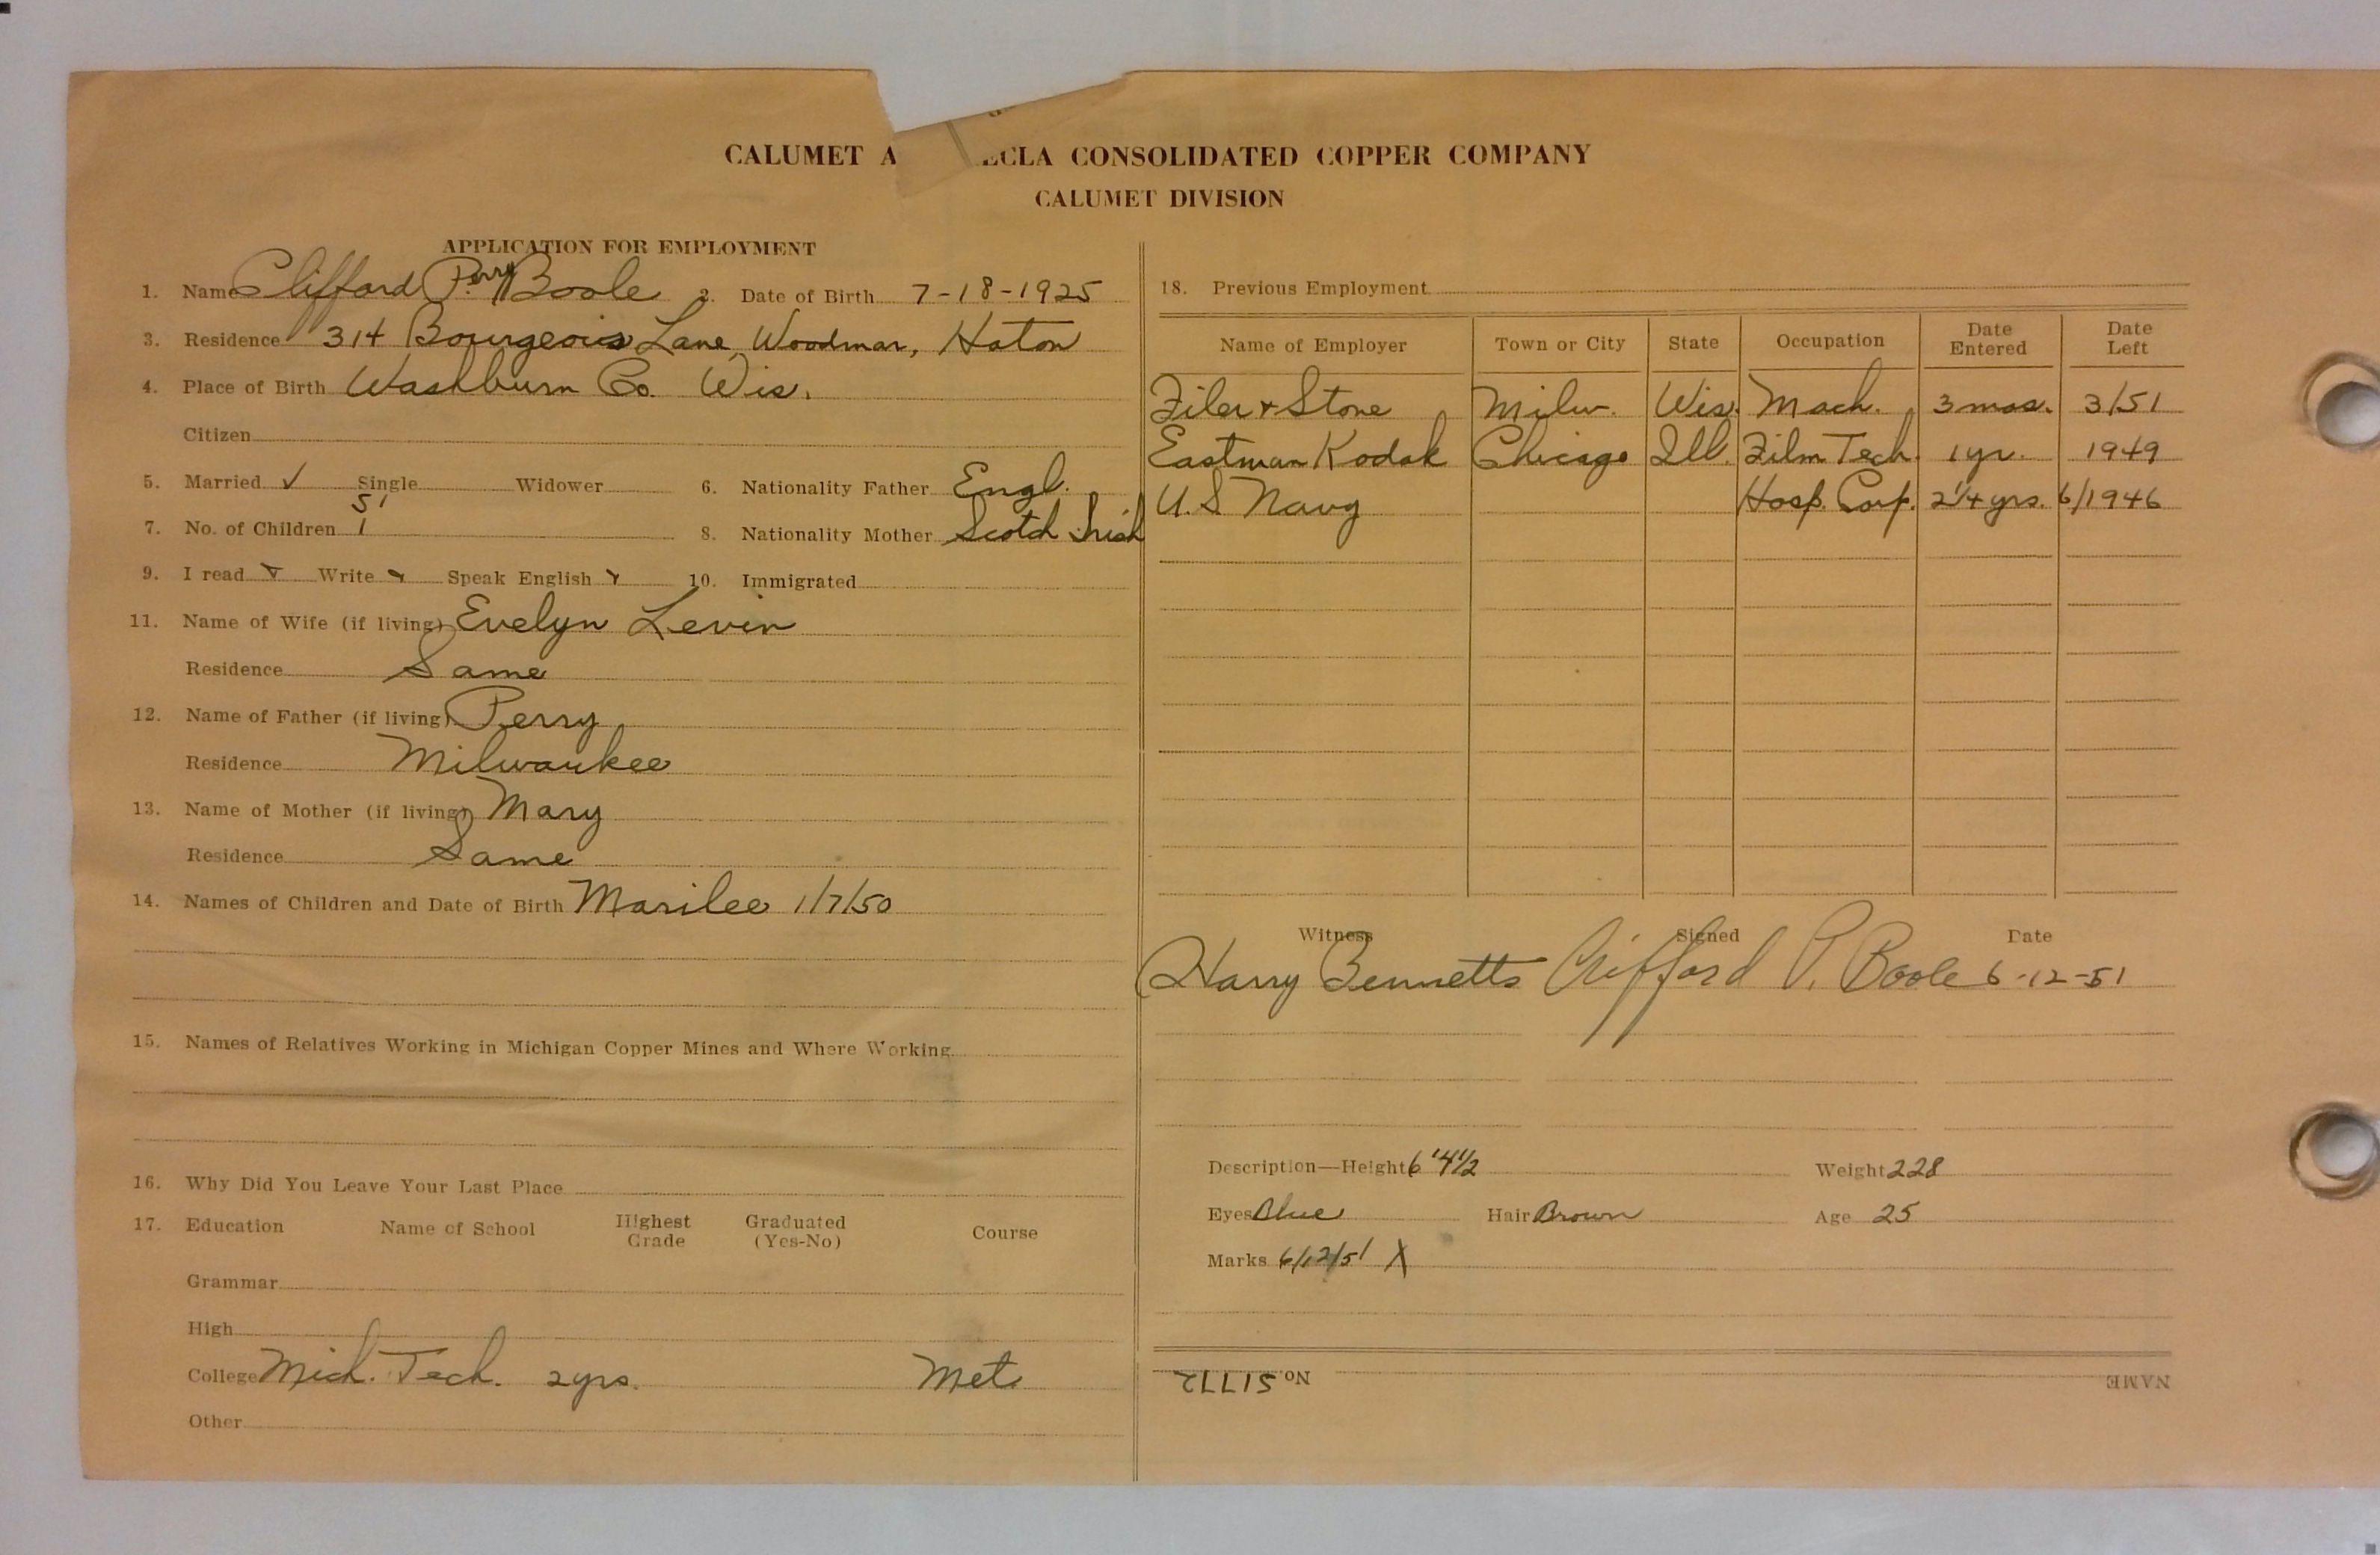 CALUMET A ECLA CONSOLIDATED COPPER COMPANY
CALUMET DIVISION
APPLICATION FOR EMPLOYMENT
1. Name Clifford Perry Boole 2. Date of Birth 7-18-1925
3. Residence 314 Bourgeois Lane, Woodmar, Hoton
4. Place of Birth Washburn Co. Wis.
Citizen
5. Married ✓ Single Widower 6. Nationality Father Engl.
51
7. No. of Children 1 8. Nationality Mother Scotch Irish
9. I read ✓ Write ✓ Speak English ✓ 10. Immigrated
11. Name of Wife (if living) Evelyn Levin
Residence Same
12. Name of Father (if living) Perry
Residence Milwaukee
13. Name of Mother (if living) Mary
Residence Same
14. Names of Children and Date of Birth Marilee 1/7/50
15. Names of Relatives Working in Michigan Copper Mines and Where Working
16. Why Did You Leave Your Last Place
17. Education Name of School Highest Grade Graduated (Yes-No) Course
Grammar
High
College Mich. Tech. 2 yrs. Met
Other
18. Previous Employment
Name of Employer Town or City State Occupation Date Entered Date Left
Filer + Stone Milw. Wis. Mach. 3 mos. 3/51
Eastman Kodak Chicago Ill. Film Tech. 1 yr. 1949
U.S Navy Hosp. Corp. 2 1/4 yrs. 6/1946
Witness Signed Date
Harry Bennetts Clifford P. Boole 6-12-51
Description—Height 6'4 1/2 Weight 228
Eyes Blue Hair Brown Age 25
Marks 6/12/51 X
No. 51772 NAME